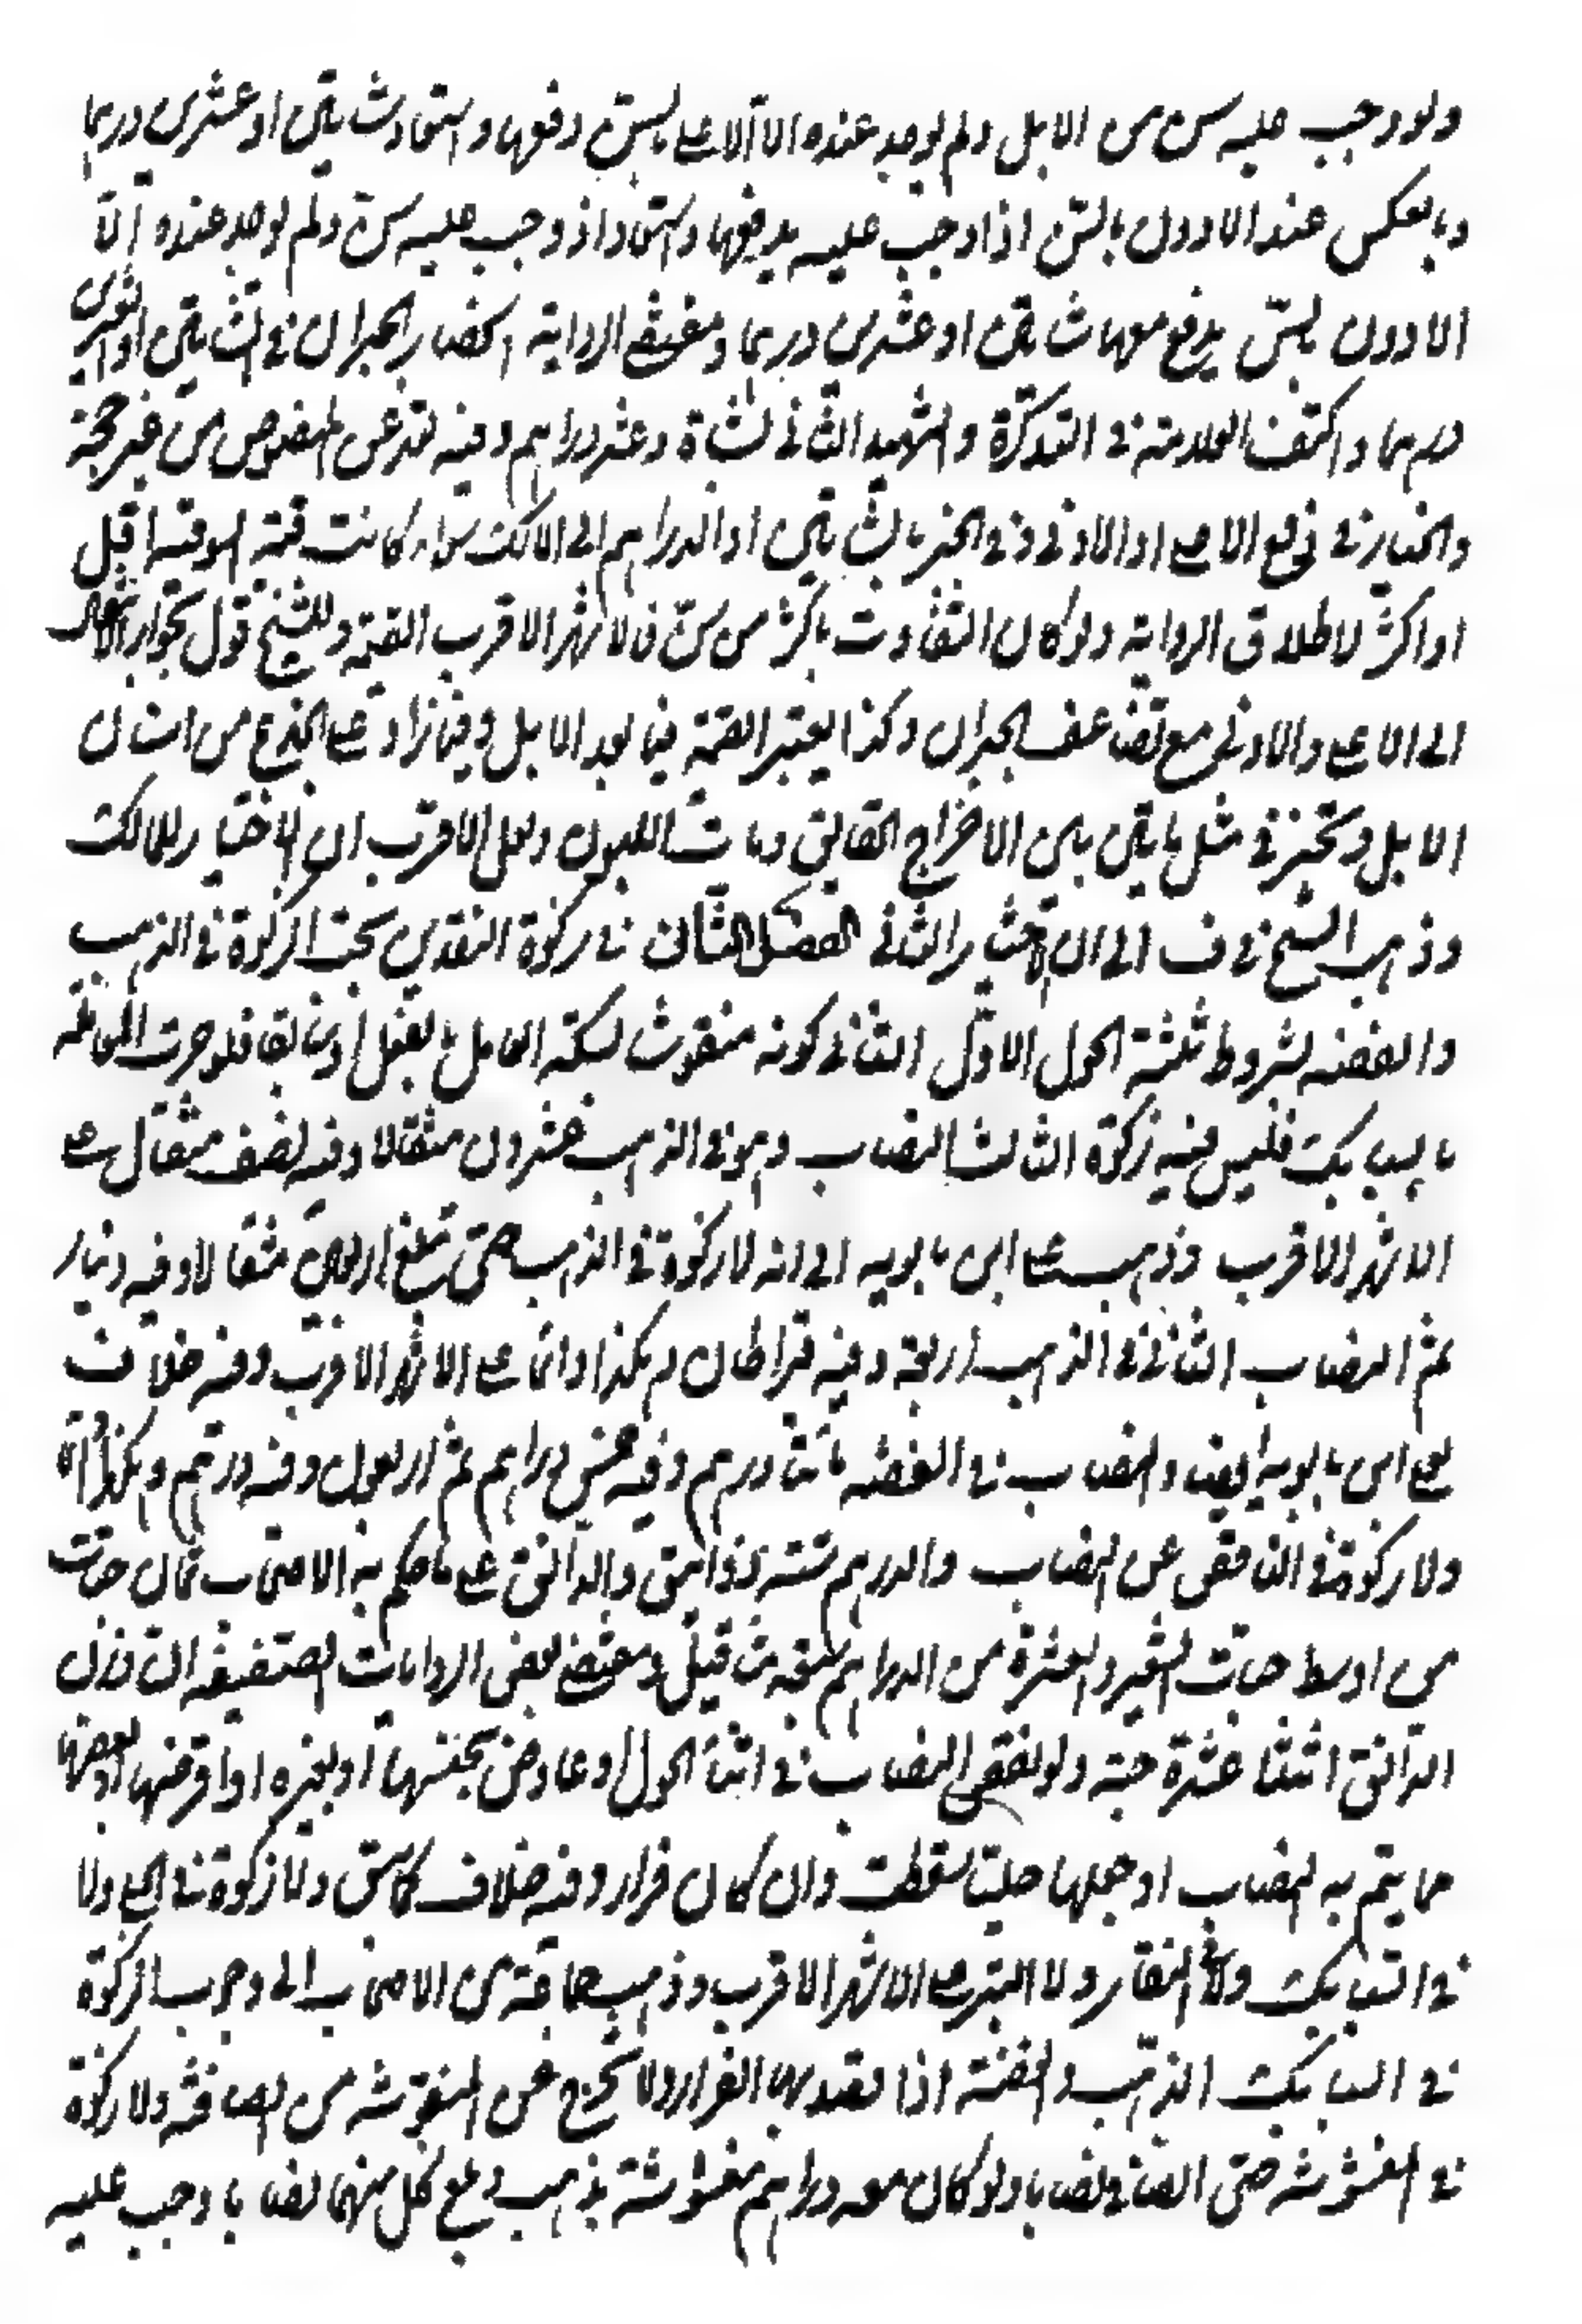 ولو وجب عليه سن من الابل ولم يوجد عنده الا الاعلى بالسن دفعها واستعاد شاتين او عشرين درهما
وبالعكس عند الادون بالسن اذا وجب عليه يدفعها واستعاد اذ وجب عليه سن ولم يوجد عنده الا
الادون بالسن يدفع معها شاتين او عشرين درهما ومقتضى الرواية انحصار الجبران في الشاتين او العشرين
درهما واكتفى العلامة في التذكرة والشهيد الثاني بشاة وعشر دراهم وفيه تعد عن المنصوص من غير حجة
والخيار في دفع الاعلى او الادنى وفي الجبر بالشاتين او الدراهم الى المالك سواء كانت قيمة السوقية اقل
او اكثر لاطلاق الرواية ولو كان التفاوت باكثر من سن فالاشهر الاقرب القيمة وللشيخ قول بجواز الانتقال
الى الاعلى والادنى مع تضاعف الجبران وكذا يعتبر القيمة فيما بعد الابل وفيما زاد على الجذع من اسنان
الابل ويتخير في مثل مايتين بين الاخراج الحقايق وبنات اللبون ولعل الاقرب ان الاختيار للمالك
وذهب الشيخ في ف الى ان الخيار للساعي الفصل الثاني في زكوة النقدين تجب الزكوة في الذهب
والفضة بشروط ثلثة الحول الاول الثاني كونه منقوشا بسكة المعاملة بالفعل او سابقا فلو جرت المعاملة
بالسبايك فليس فيه زكوة الثالث النصاب وهو في الذهب عشرون مثقالا وفيه نصف مثقال على
الاشهر الاقرب وذهب على ابن بابويه الى انه لا زكوة في الذهب حتى تبلغ اربعين مثقالا وفيه دينار
ثم النصاب الثاني في الذهب اربعة وفيه قيراطان وهكذا دائما على الاشهر الاقرب وفيه خلاف
علي ابن بابويه ايضا والنصاب في الفضة مائتا درهم وفيه خمس دراهم ثم اربعون وفيه درهم وهكذا دائما
ولا زكوة في الناقص عن النصاب والدرهم ستة دوانيق والدانق على ما حكم به الاصحاب ثمان حبات
من اوسط حبات الشعير والعشرة من الدراهم سبعة مثاقيل ومقتضى بعض الروايات الضعيفة ان وزن
الدانق اثنتا عشرة حبة ولو نقص النصاب في اثناء الحول او عاوض بجنسها او بغيره او اقرضها او بعضها
مما يتم به النصاب او جعلها حليا سقطت وان كان فرارا وفيه خلاف كما سبق ولا زكوة في الحلي ولا
في السبايك ولا في النقار ولا التبر على الاشهر الاقرب وذهب جماعة من الاصحاب الى وجوب الزكوة
في السبايك الذهب والفضة اذا قصد بها الفرار ولا تخرج عن المغشوشة من الصافية ولا زكوة
في المغشوشة حتى الصافي نصابا ولو كان معه دراهم مغشوشة بذهب وبلغ كل منهما نصابا وجب عليه